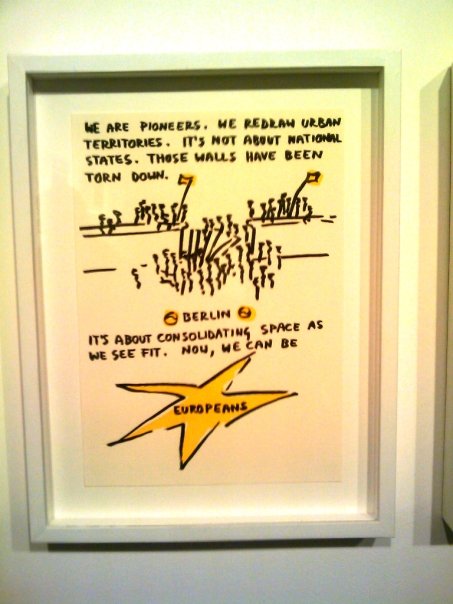 WE ARE PIONEERS. WE REDRAW URBAN
TERRITORIES. IT'S NOT ABOUT NATIONAL
STATES. THOSE WALLS HAVE BEEN
TORN DOWN.
BERLIN
IT'S ABOUT CONSOLIDATING SPACE AS
WE SEE FIT. NOW, WE CAN BE
EUROPEANS